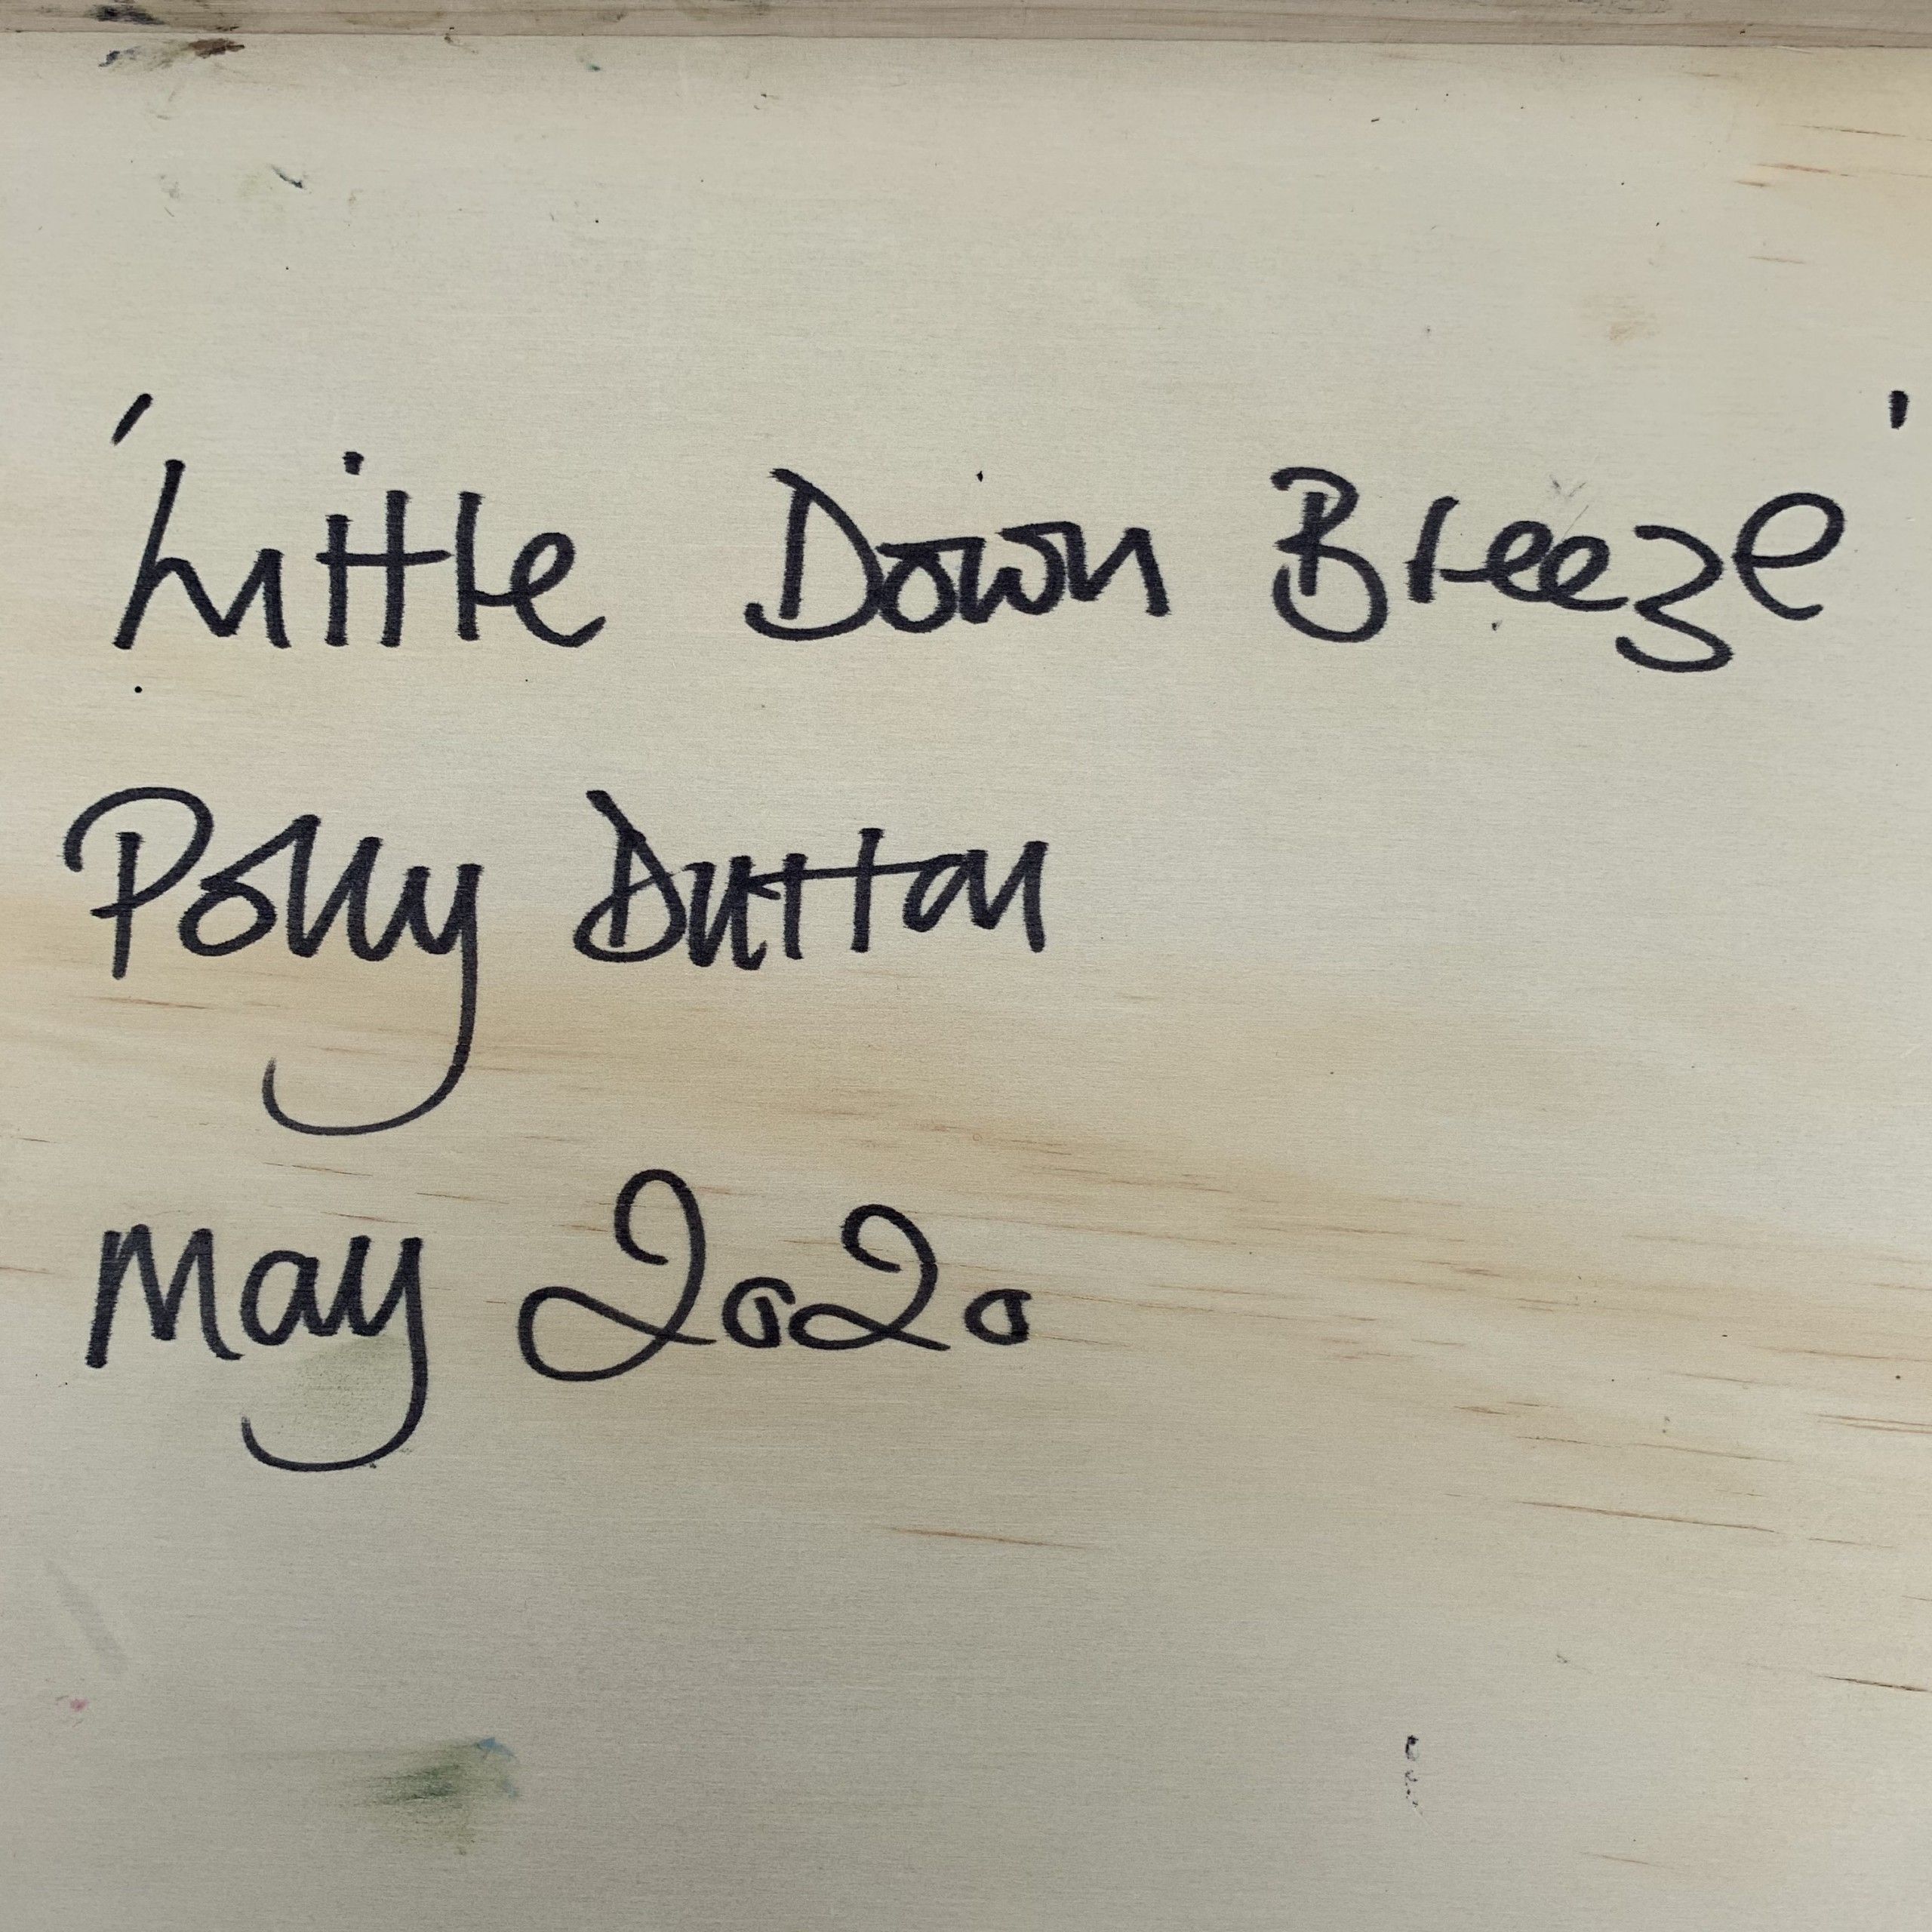 'Little Down Breeze'
Polly Dutton
May 2020